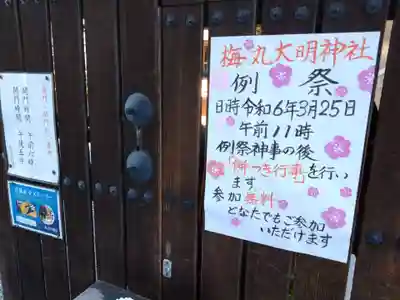 梅丸大明神社
例 祭
日時令和6年3月25日
午前11時
例祭神事の後
「餅つき行事」を行い
ます
参加無料
どなたでもご参加
いただけます
開門時間 午前六時
閉門時間 午後五時